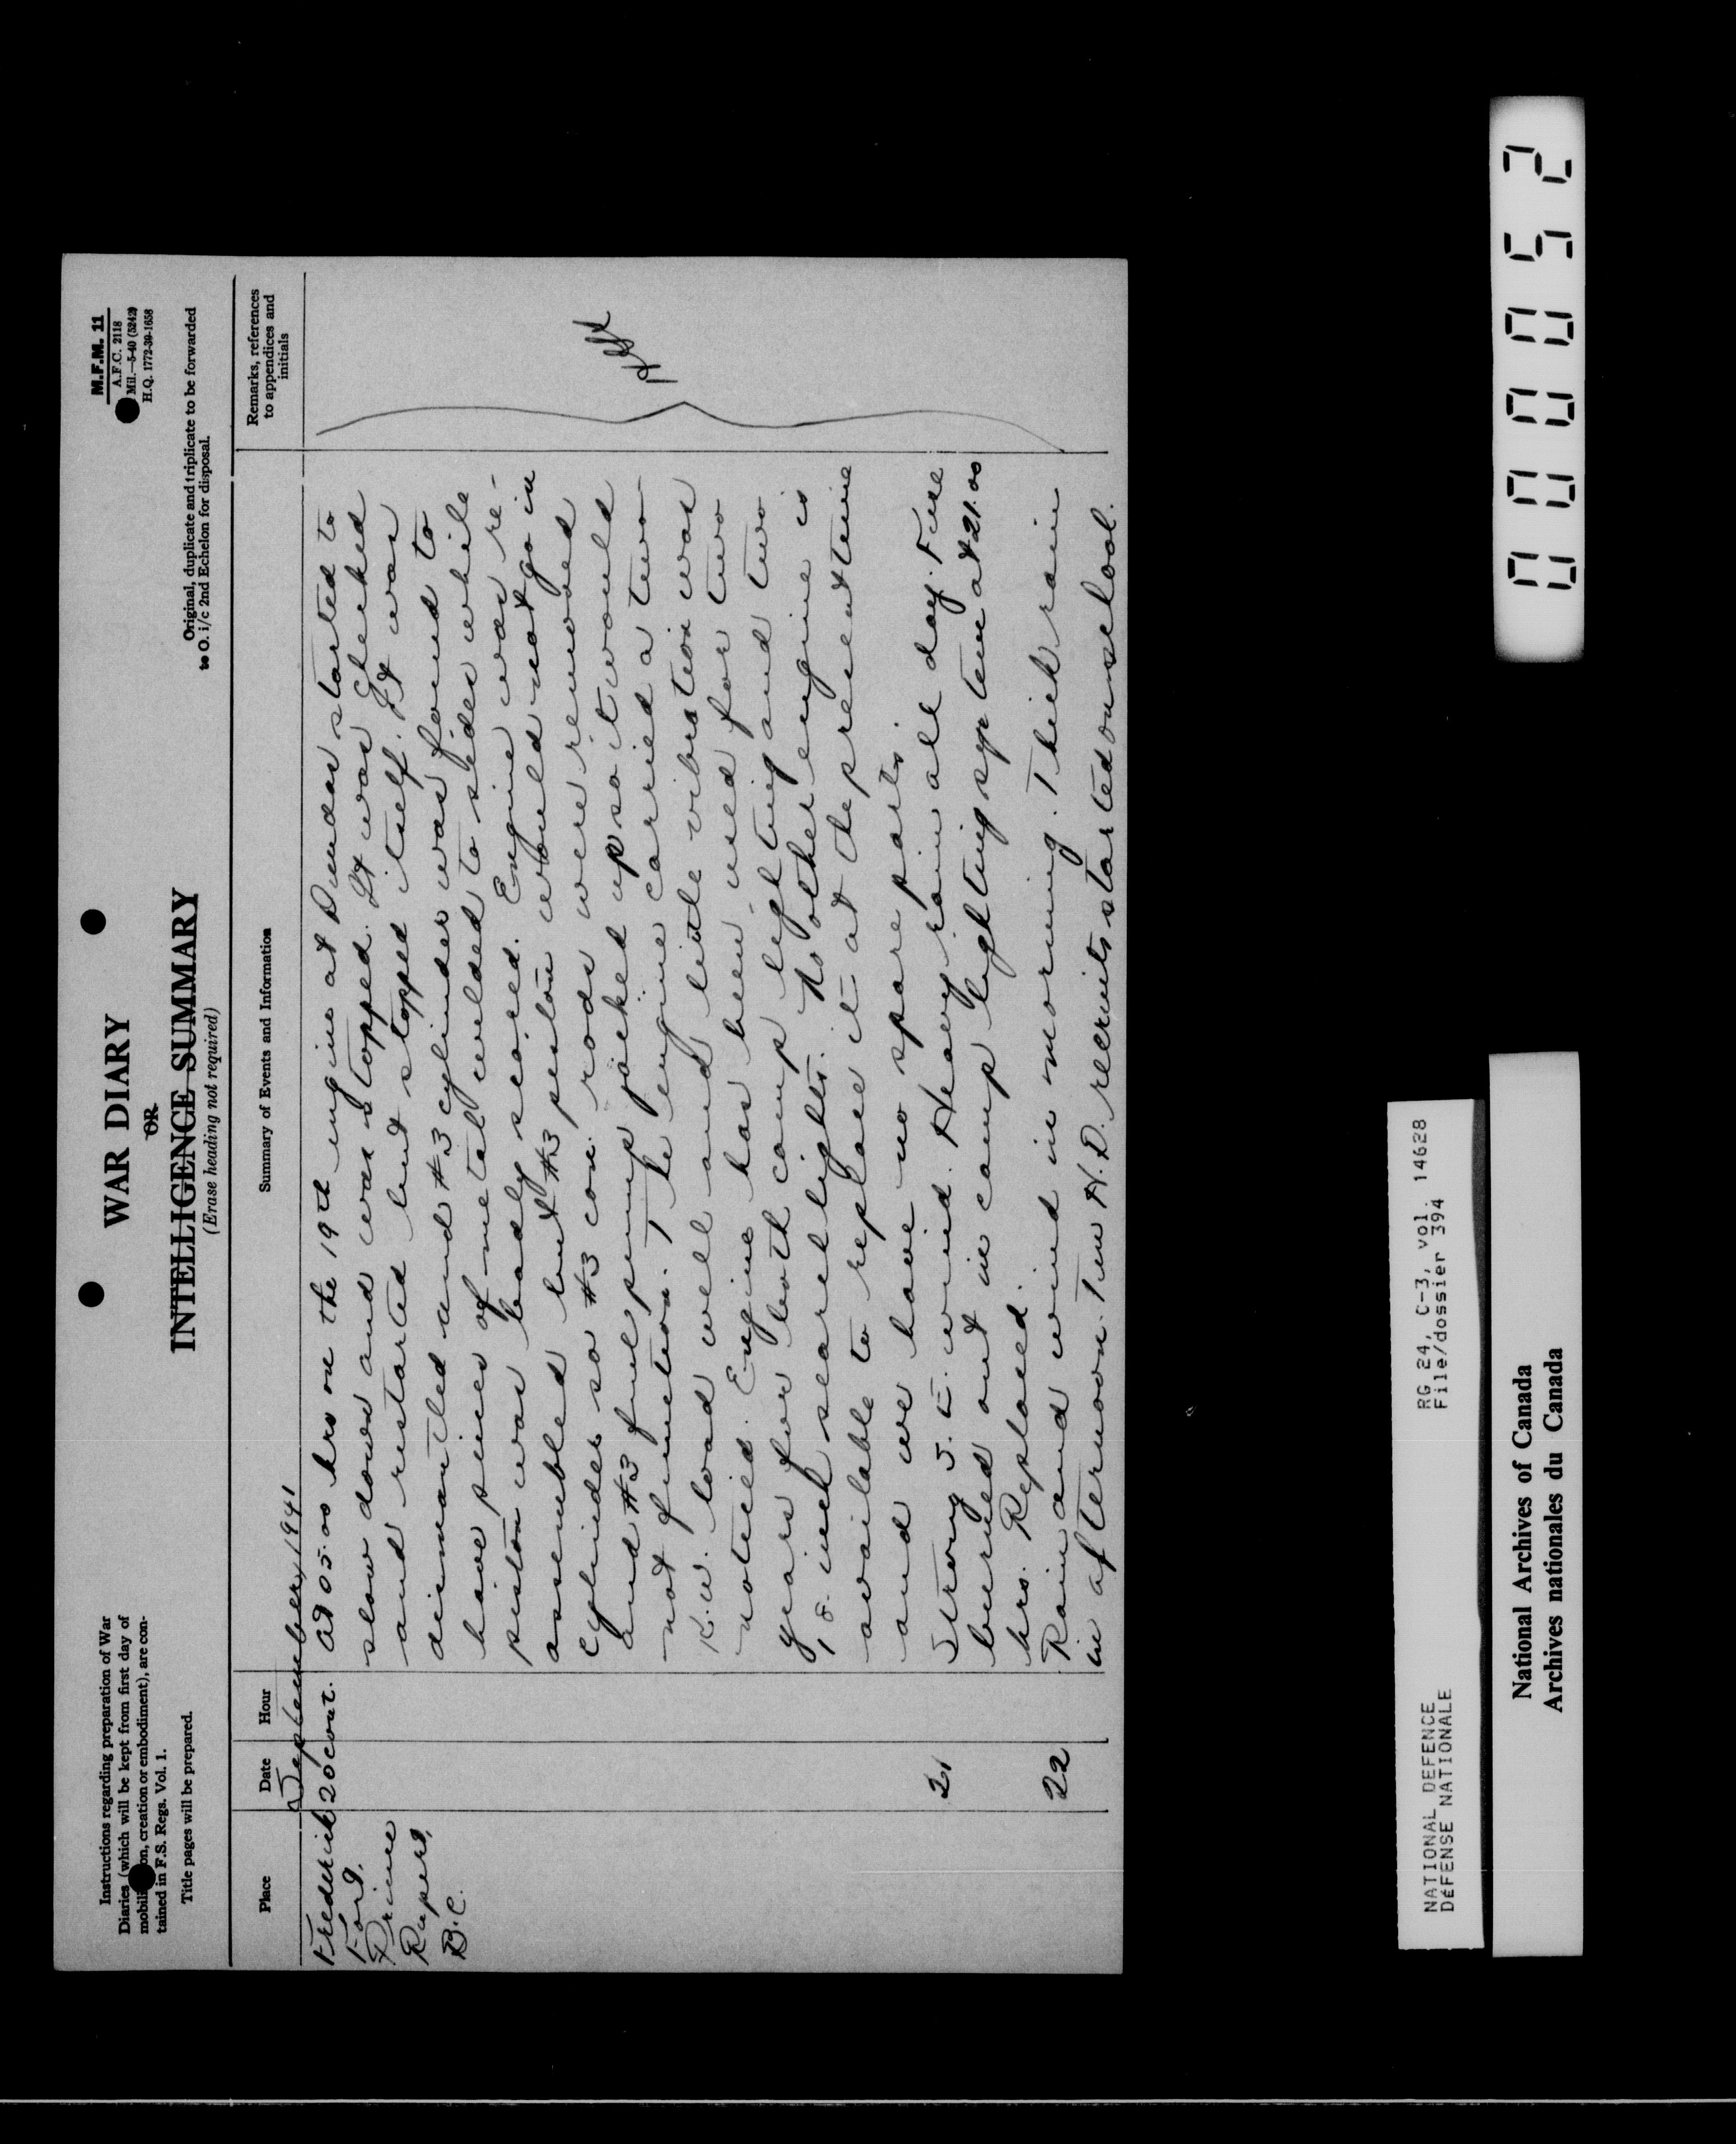 Instructions regarding preparation of War
Diaries (which will be kept from first day of
mobili on, creation or embodiment), are con-
tained in F.S. Regs. Vol. 1.
Title pages will be prepared.
WAR DIARY
OR
INTELLIGENCE SUMMARY
(Erase heading not required)
M.F.M. 11
A.F.C. 2118
Mil.—5-40 (5242)
H.Q. 1772-39-1658
Original, duplicate and triplicate to be forwarded
to O. i/c 2nd Echelon for disposal.
Place
Date
Hour
Summary of Events and Information
Remarks, references
to appendices and
initials
September, 1941
Frederick
Fort,
Prince
Rupert,
B.C.
20 cont.
At 05.00 hrs on the 19th engine at Dundas started to
slow down and was stopped. It was checked
and restarted but stopped itself. It was
dismantled and #3 cylinder was found to
have pieces of metal welded to sides while
piston was badly scored. Engine was re-
assembled but #3 piston would not go in
cylinder so #3 con. rods were removed
and #3 fuel pump jacked up so it would
not function. The engine carried a two
K.W. load well and little vibration was
noticed. Engine has been used for two
years for both camp lighting and two
18 inch searchlights. No other engine is
available to replace it at the present time
and we have no spare parts.
21
Strong S.E. wind. Heavy rain all day. Fuse
burned out in camp lighting system at 21.00
hrs. Replaced.
22
Rain and wind in morning. Thick rain
in afternoon. Two H.D. recruits started on school.
NATIONAL DEFENCE
DÉFENSE NATIONALE
RG 24, C-3, vol. 14628
File/dossier 394
National Archives of Canada
Archives nationales du Canada
000052